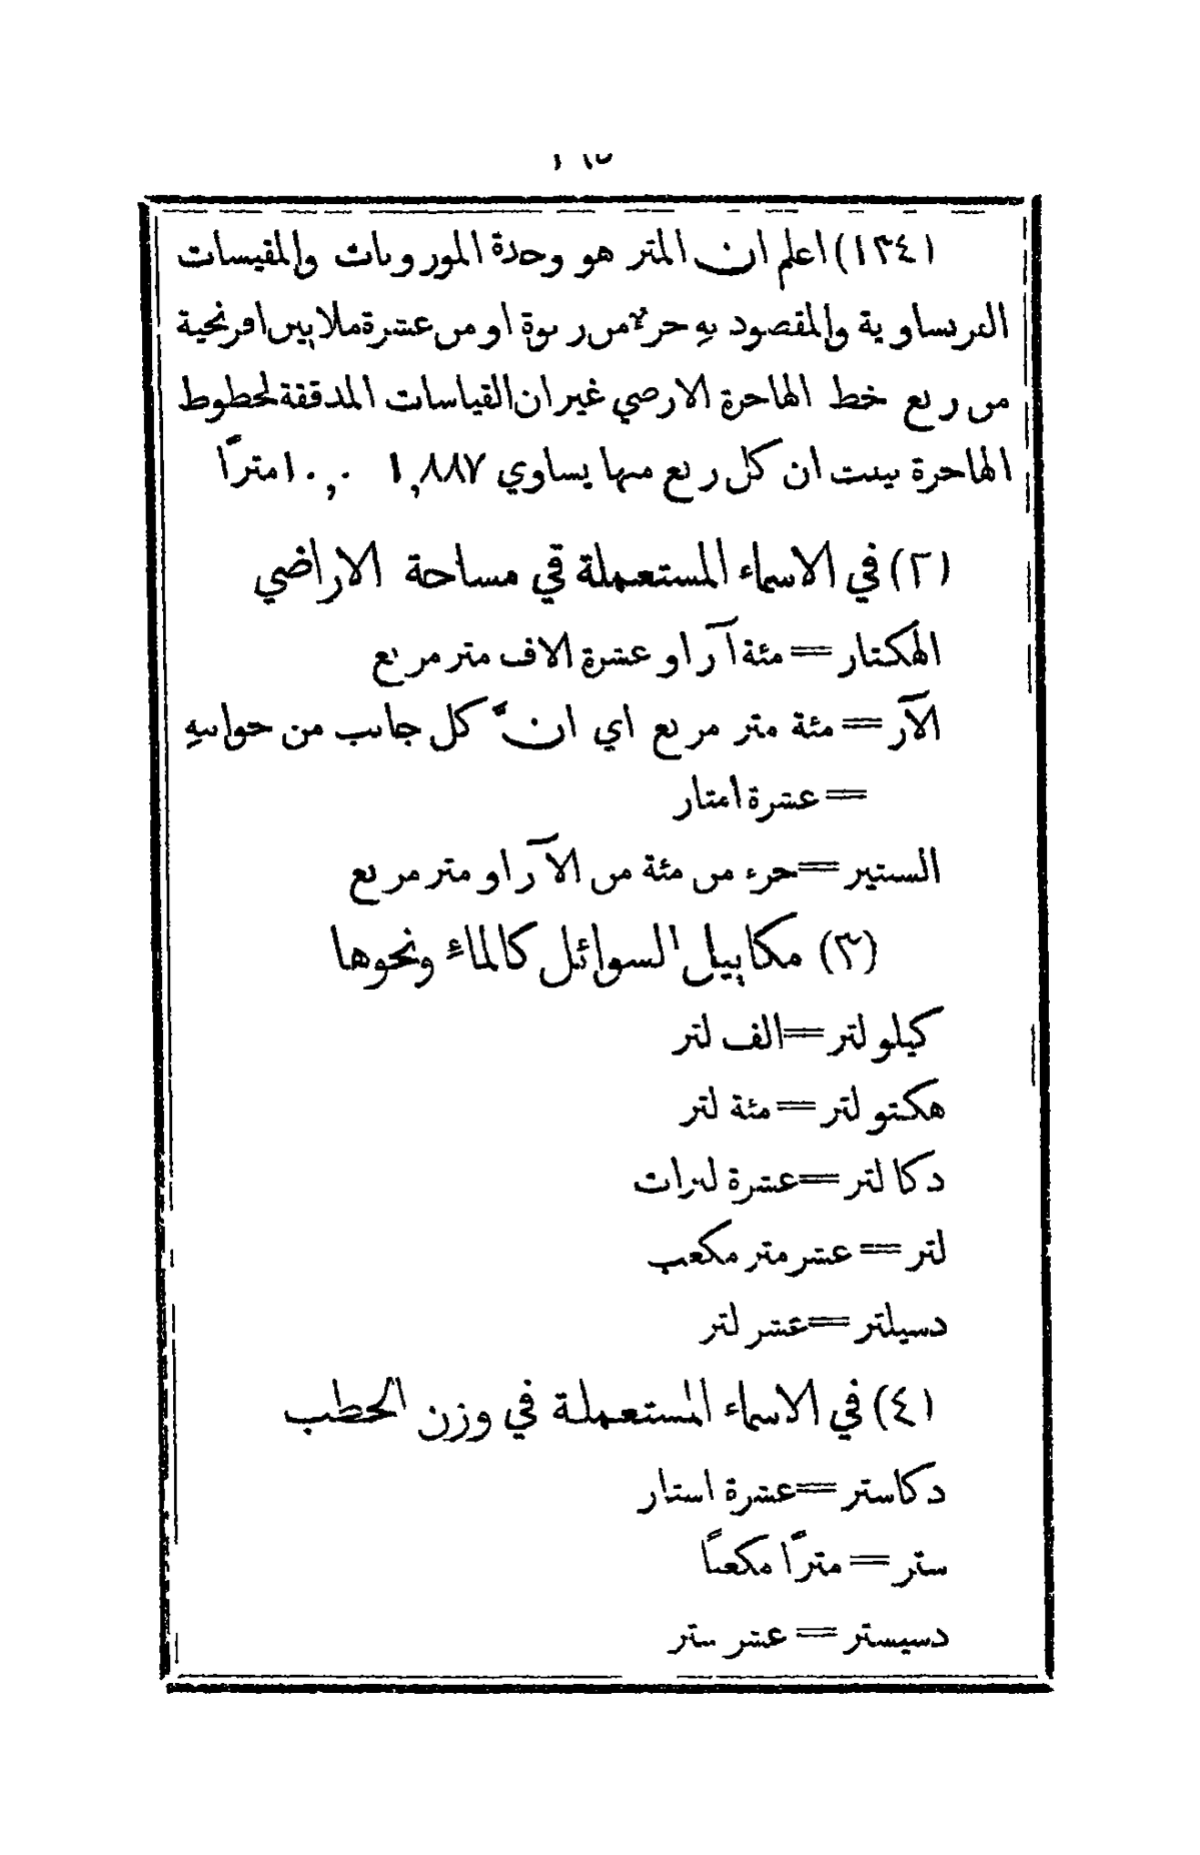 (١٣٤) اعلم ان المتر هو وحدة الموزونات والمقيسات
الفرنساوية والمقصود بهِ جزءٌ من ربوة او من عشرة ملايين افرنجية
من ربع خط الهاجرة الارضي غير ان القياسات المدققة لخطوط
الهاجرة بينت ان كل ربع منها يساوي ١,٨٨٧ ١٠٠,٠ مترًا
(٢) في الاسماء المستعملة في مساحة الاراضي
الهكتار = مئة آر او عشرة الاف متر مربع
الآر = مئة متر مربع اي انَّ كل جانب من جوانبهِ
= عشرة امتار
السنتيير = جزء من مئة من الآر او متر مربع
(٣) مكاييل السوائل كالماءِ ونحوها
كيلو لتر = الف لتر
هكتو لتر = مئة لتر
دكا لتر = عشرة لترات
لتر = عشر متر مكعب
دسيلتر = عشر لتر
(٤) في الاسماء المستعملة في وزن الحطب
دكاستر = عشرة استار
ستر = مترًا مكعبًا
دسيستر = عشر ستر